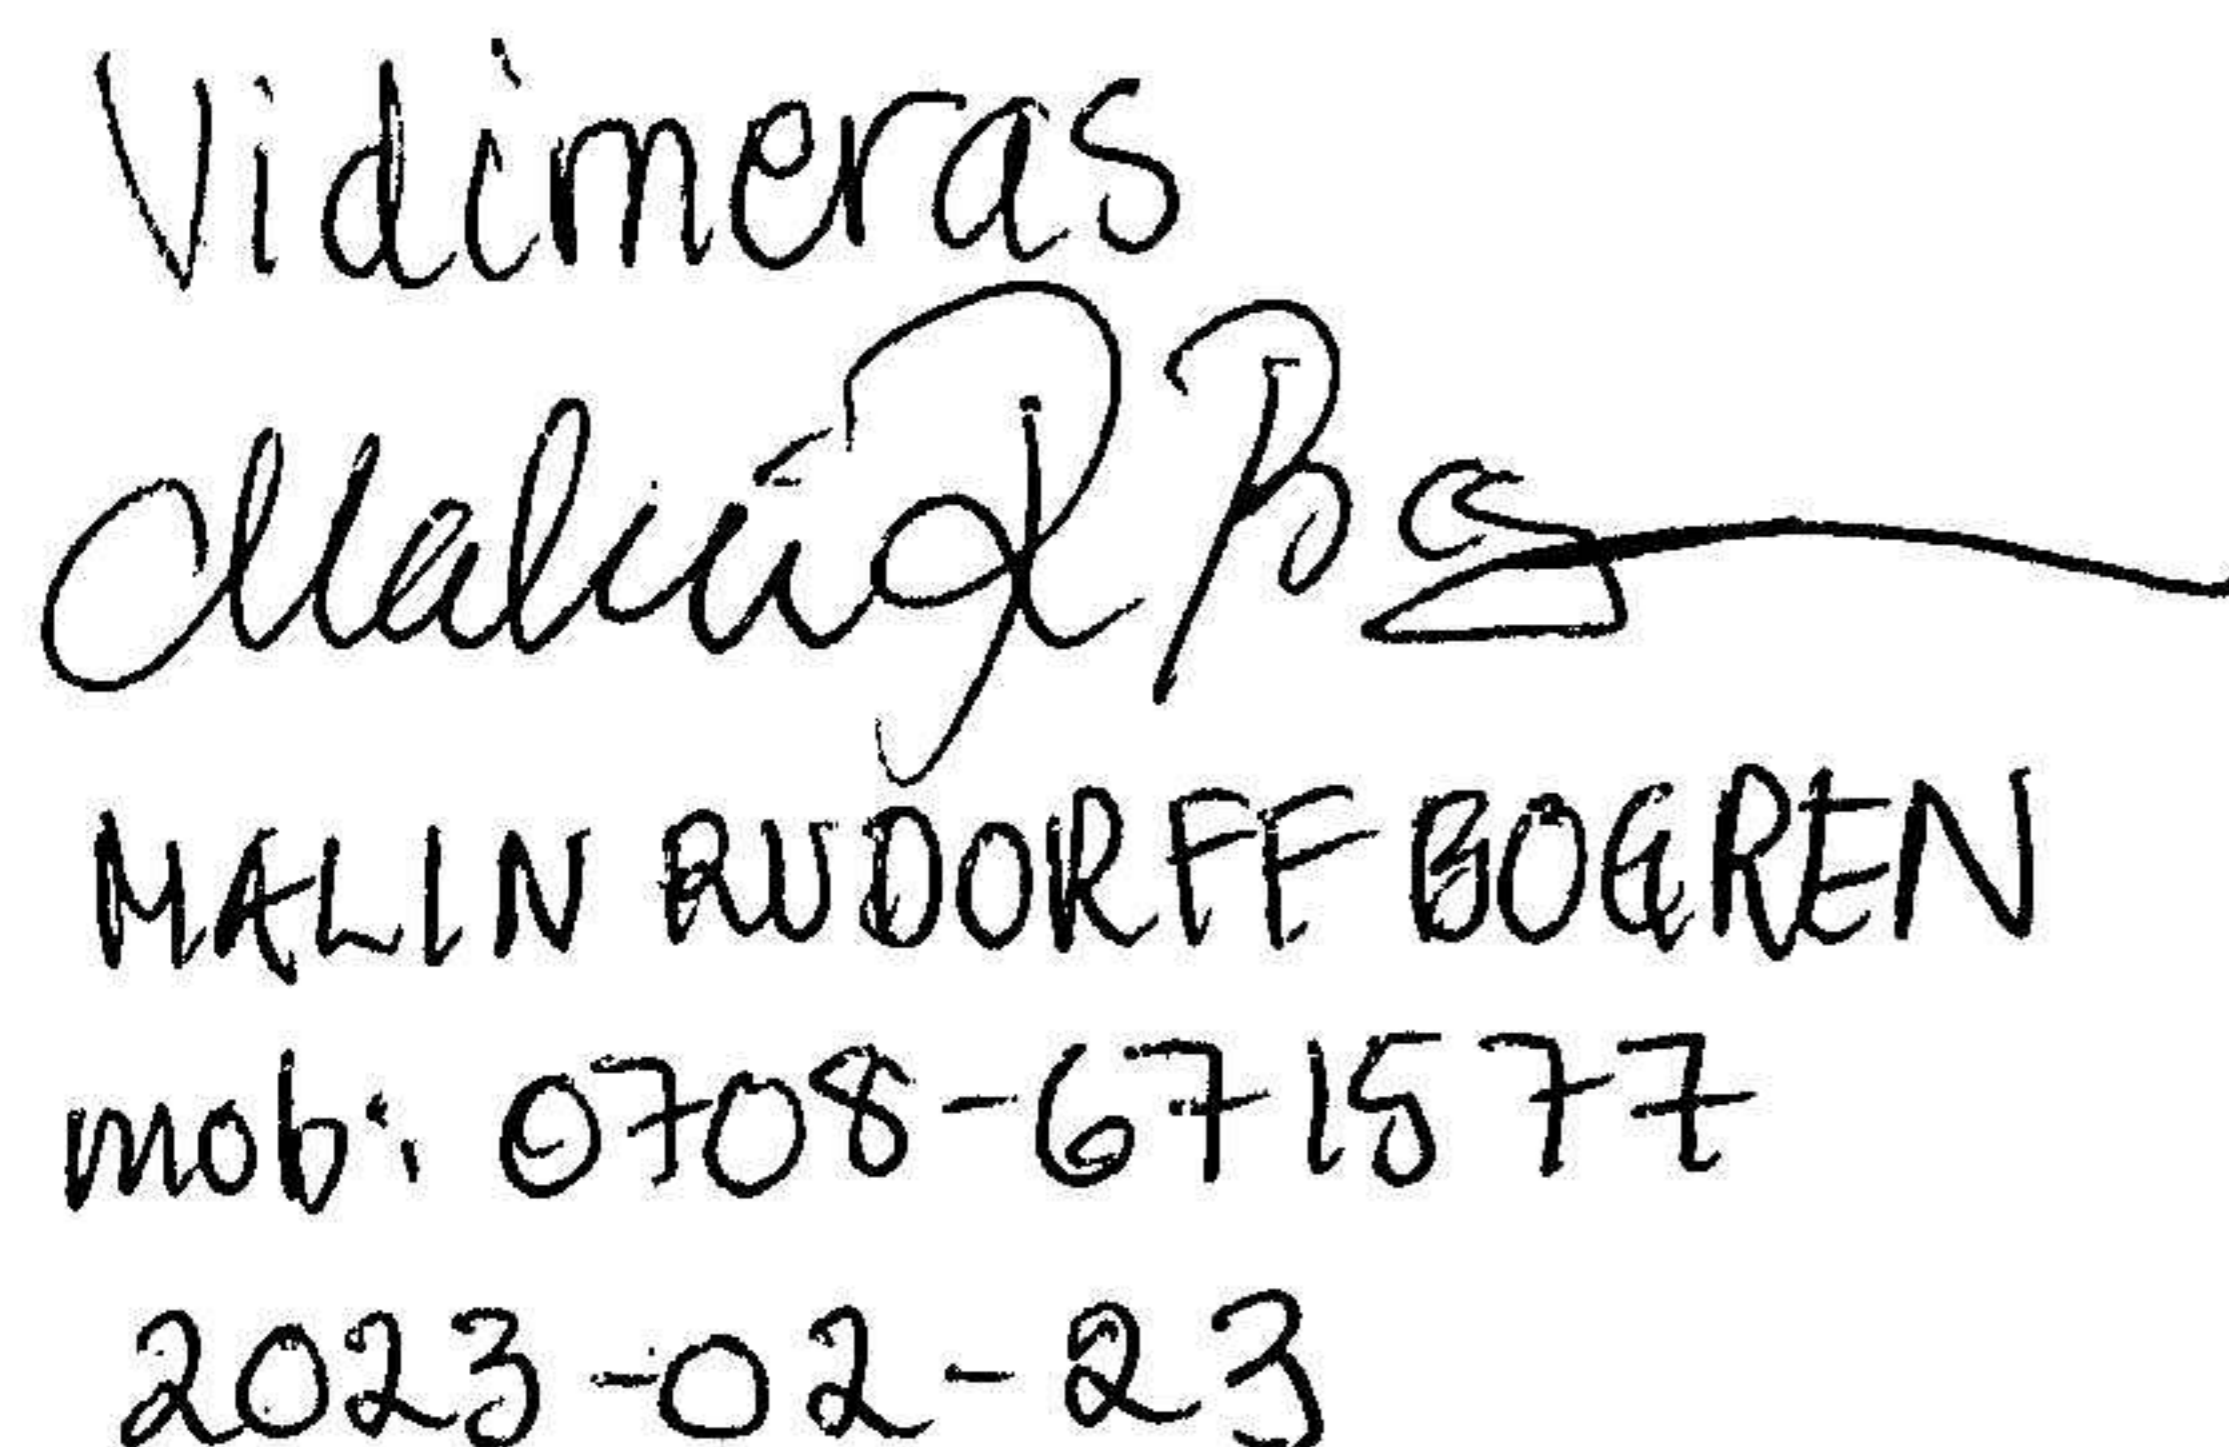 Vidimeras
Malin R B
MALIN RUDORFF BOGREN
mob: 0708-671577
2023-02-23